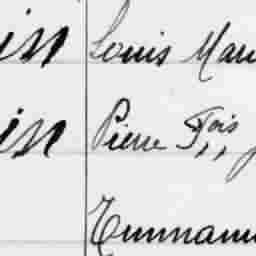 in Louis Mari
in Pierre Fçois J
Emmanu